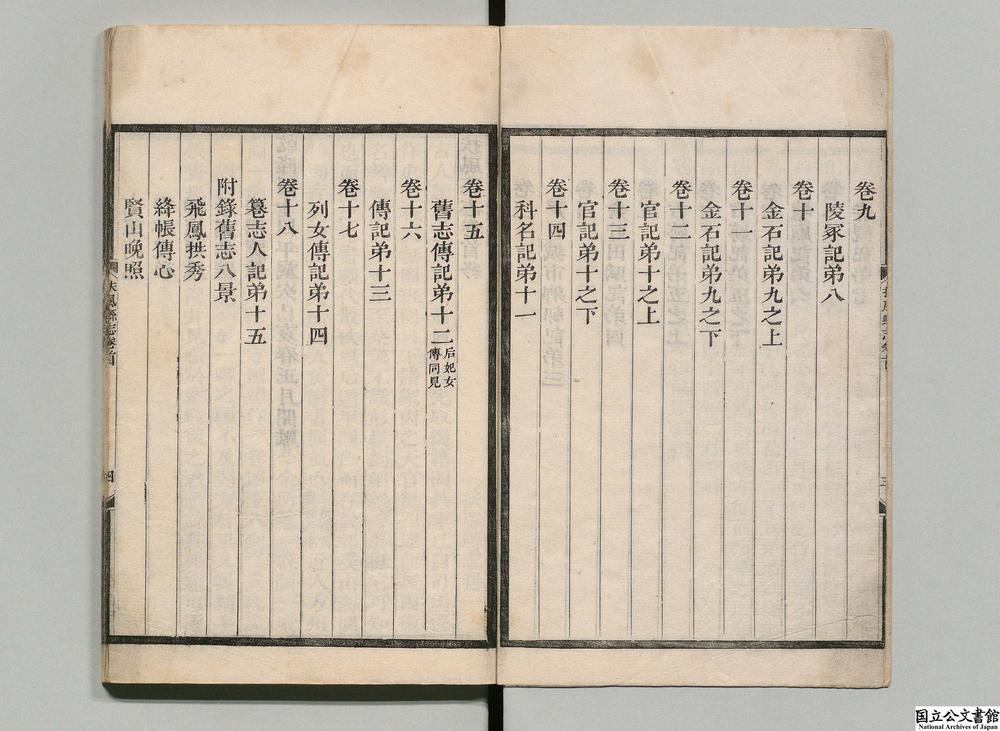 卷九
陵冢記弟八
卷十
金石記弟九之上
卷十一
金石記弟九之下
卷十二
官記弟十之上
卷十三
官記弟十之下
卷十四
科名記弟十一
卷十五
舊志傳記弟十二后妃女傳同見
卷十六
傳記弟十三
卷十七
列女傳記弟十四
卷十八
纂志人記弟十五
附錄舊志八景
飛鳳拱秀
絳帳傳心
賢山晚照
扶風縣志卷首
四
国立公文書館
National Archives of Japan